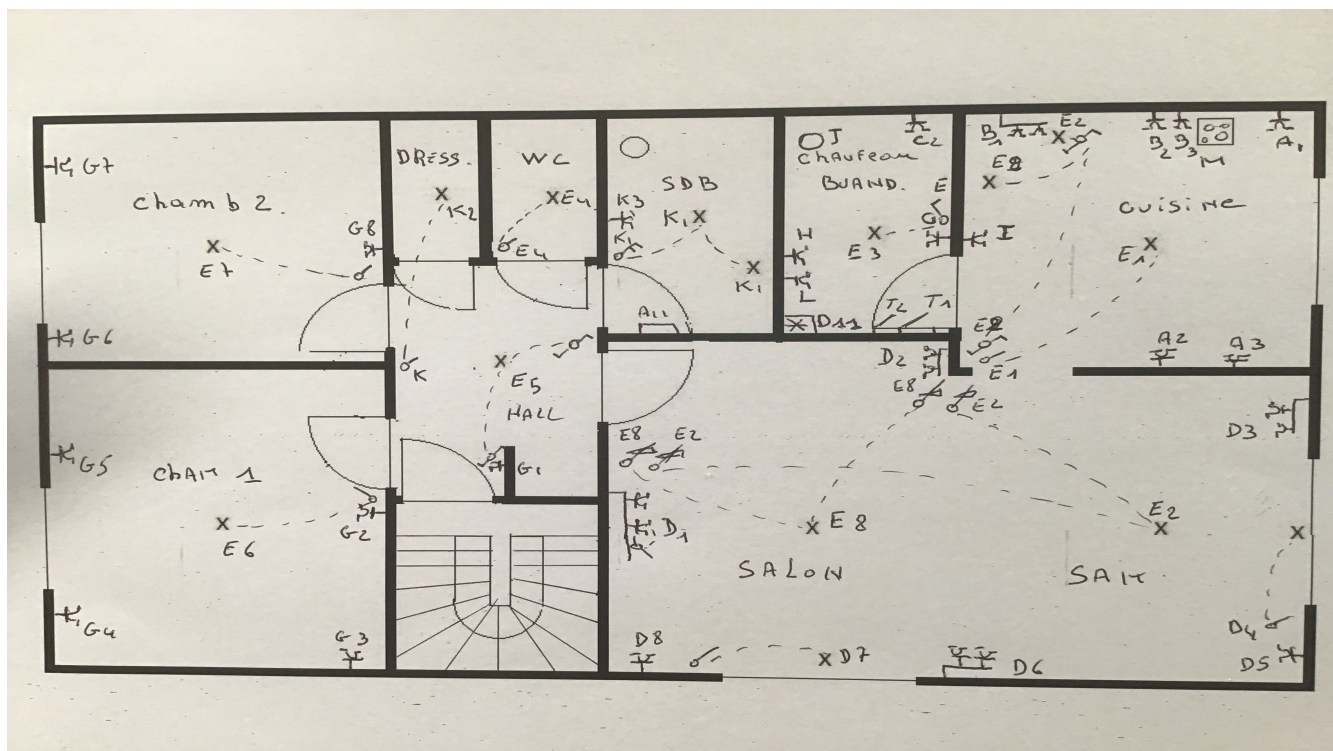 G7
Chamb 2.
E7
G8
G6
DRESS.
K2
K
WC
E4
E4
SDB
K3
K1
K1
K1
A11
J
Chaufeau
BUAND.
C2
E
E3
H
L
D11
T2
T1
I
B1
E2
E8
B2
B3
M
A1
CUISINE
E1
E1
A2
A3
D2
E8
E2
D3
E5
HALL
G1
G5
CHAM 1
E6
G2
G4
G3
E8
E2
D1
E8
SALON
E2
SAM
D4
D5
D8
D7
D6